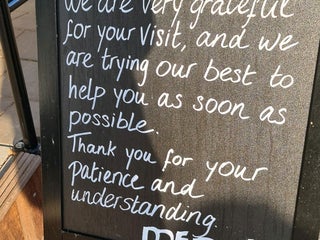 We are very grateful
for your visit, and we
are trying our best to
help you as soon as
possible.
Thank you for your
patience and
understanding.